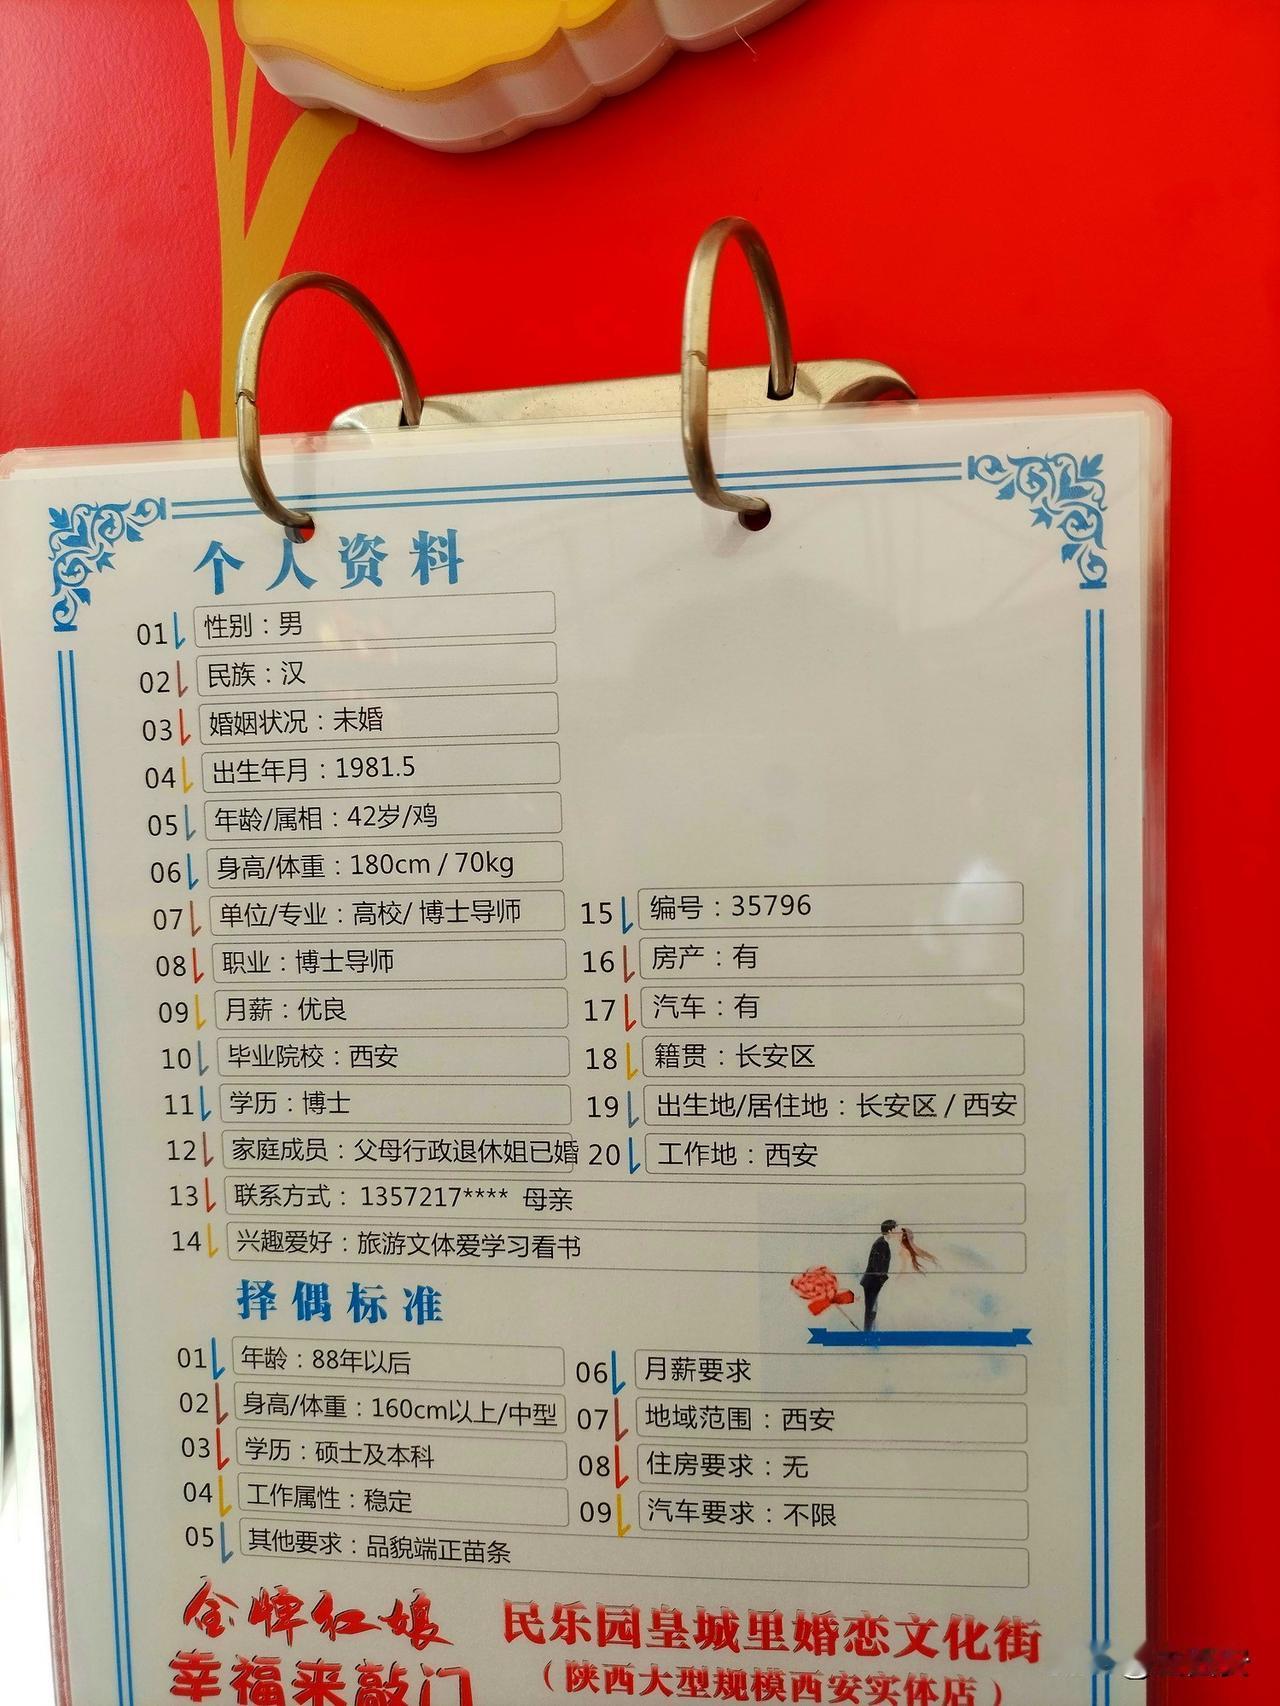 个人资料
01 性别：男
02 民族：汉
03 婚姻状况：未婚
04 出生年月：1981.5
05 年龄/属相：42岁/鸡
06 身高/体重：180cm / 70kg
07 单位/专业：高校/ 博士导师
08 职业：博士导师
09 月薪：优良
10 毕业院校：西安
11 学历：博士
12 家庭成员：父母行政退休姐已婚
13 联系方式： 1357217**** 母亲
14 兴趣爱好：旅游文体爱学习看书
15 编号：35796
16 房产：有
17 汽车：有
18 籍贯：长安区
19 出生地/居住地：长安区 / 西安
20 工作地：西安
择偶标准
01 年龄：88年以后
02 身高/体重：160cm以上/中型
03 学历：硕士及本科
04 工作属性：稳定
05 其他要求：品貌端正苗条
06 月薪要求
07 地域范围：西安
08 住房要求：无
09 汽车要求：不限
金牌红娘
幸福来敲门
民乐园皇城里婚恋文化街
（陕西大型规模西安实体店）